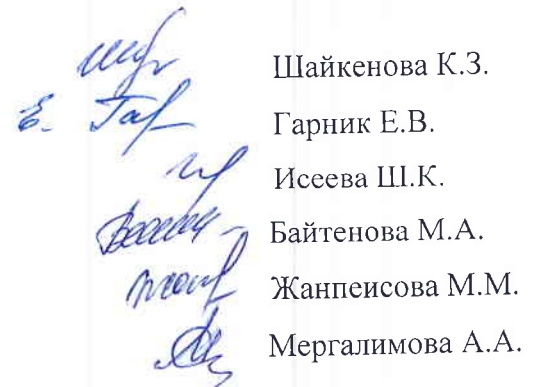 Шайкенова К.З.
Е. Гар Гарник Е.В.
Исеева Ш.К.
Байтенова М.А.
Жанпеисова М.М.
Мергалимова А.А.